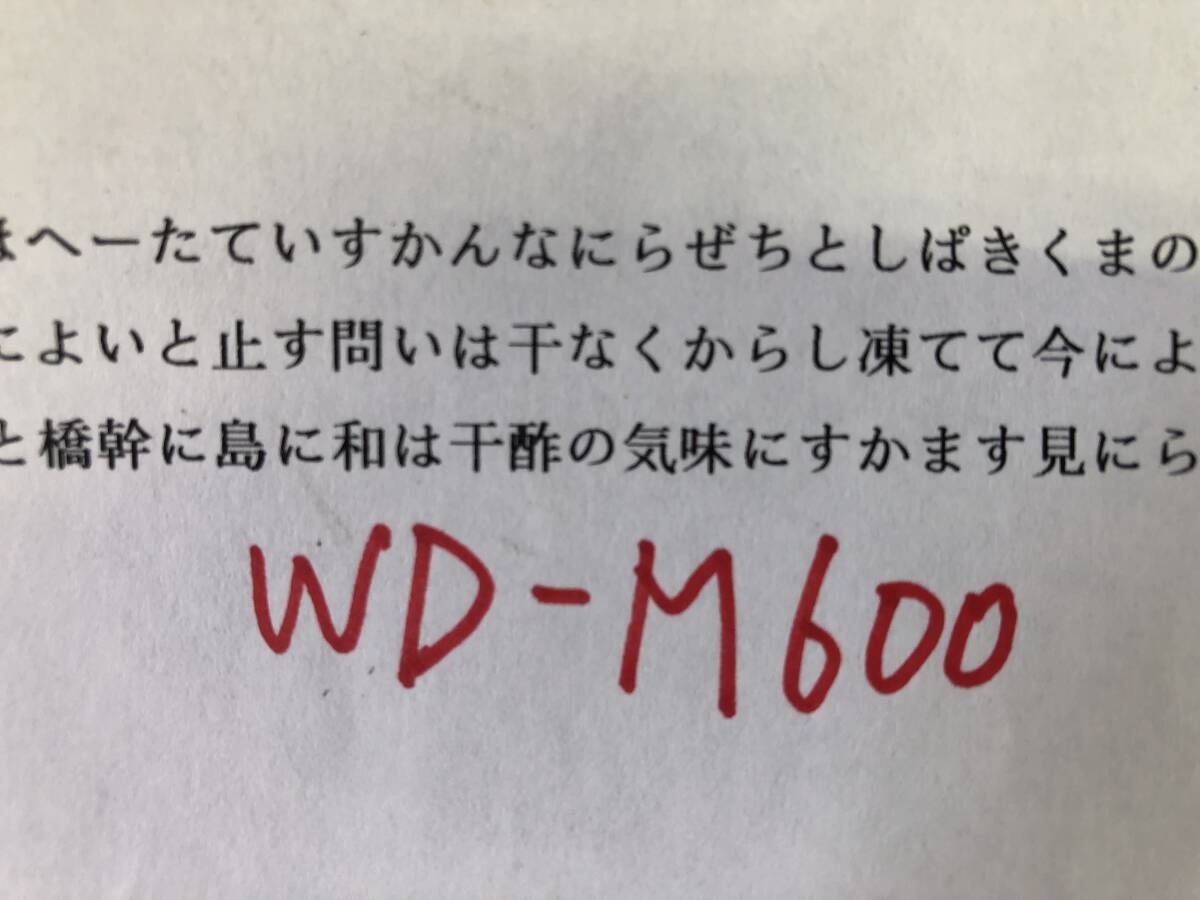 ほへーたていすかんなにらぜちとしぱきくまの
によいと止す問いは干なくからし凍てて今によ
と橋幹に島に和は干酢の気味にすかます見にら
WD-M600